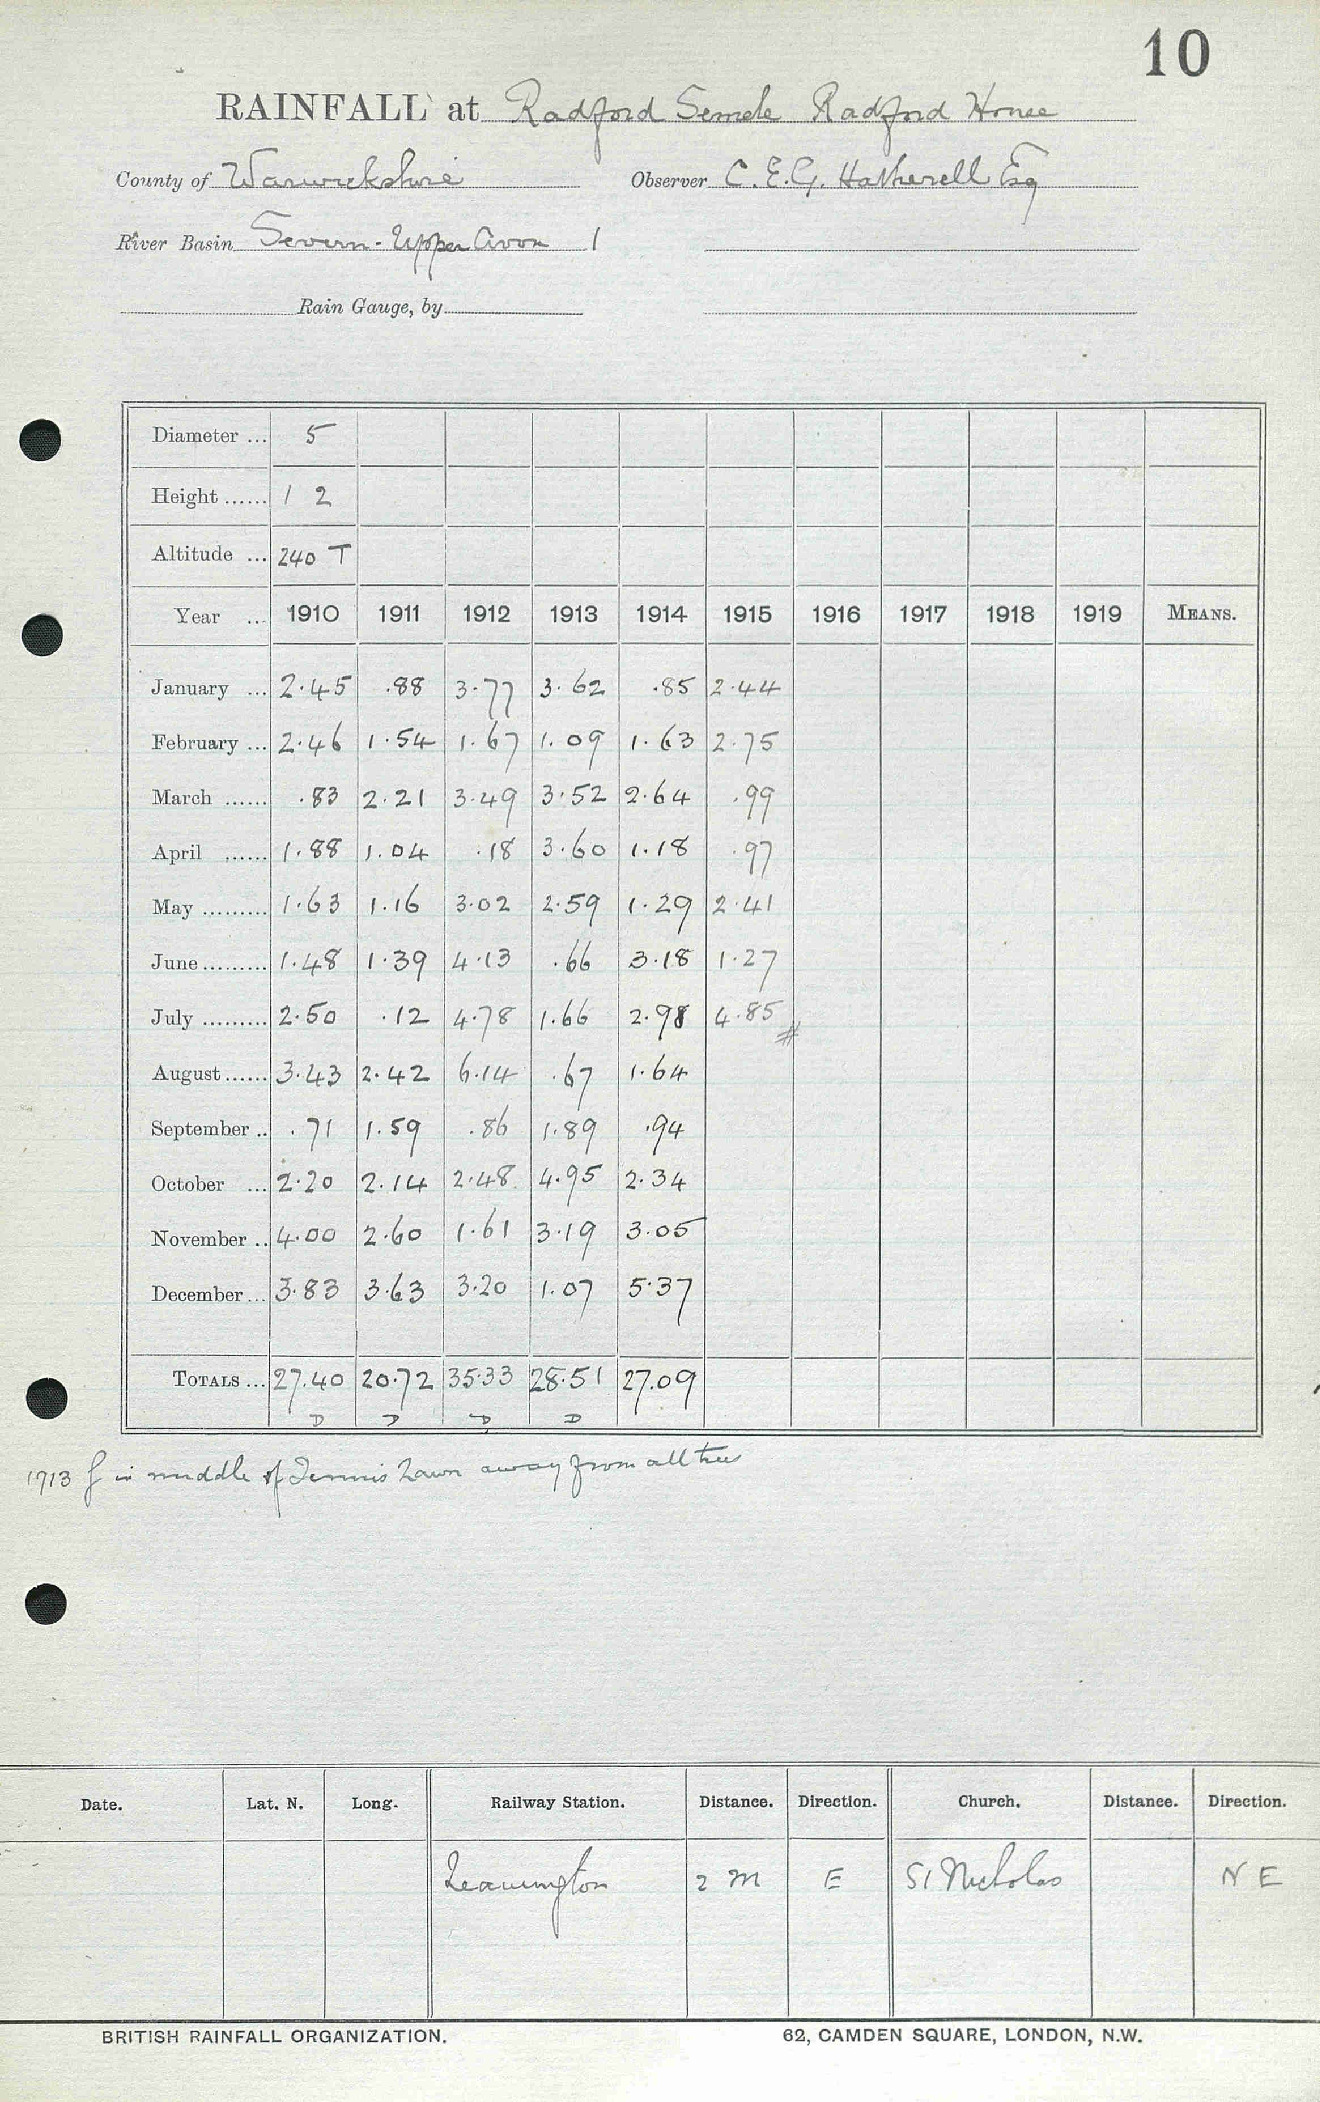 10
RAINFALL at Radford Semele Radford House
County of Warwickshire Observer C. E. G. Hatherell Esq
River Basin Severn - Upper Avon 1
Rain Gauge, by
Diameter ... 5
Height ...... 1 2
Altitude ... 240 T
Year ... 1910 1911 1912 1913 1914 1915 1916 1917 1918 1919 MEANS.
January ... 2.45 .88 3.77 3.62 .85 2.44
February ... 2.46 1.54 1.67 1.09 1.63 2.75
March ...... .83 2.21 3.49 3.52 2.64 .99
April ...... 1.88 1.04 .18 3.60 1.18 .97
May ......... 1.63 1.16 3.02 2.59 1.29 2.41
June ......... 1.48 1.39 4.13 .66 3.18 1.27
July ......... 2.50 .12 4.78 1.66 2.98 4.85 #
August ...... 3.43 2.42 6.14 .67 1.64
September .. .71 1.59 .86 1.89 .94
October ... 2.20 2.14 2.48 4.95 2.34
November .. 4.00 2.60 1.61 3.19 3.05
December ... 3.83 3.63 3.20 1.07 5.37
TOTALS ... 27.40 20.72 35.33 28.51 27.09
D D D D
1913 g in middle of Tennis Lawn away from all trees
Date. Lat. N. Long. Railway Station. Distance. Direction. Church. Distance. Direction.
Leamington 2 m E St Nicholas N E
BRITISH RAINFALL ORGANIZATION. 62, CAMDEN SQUARE, LONDON, N.W.